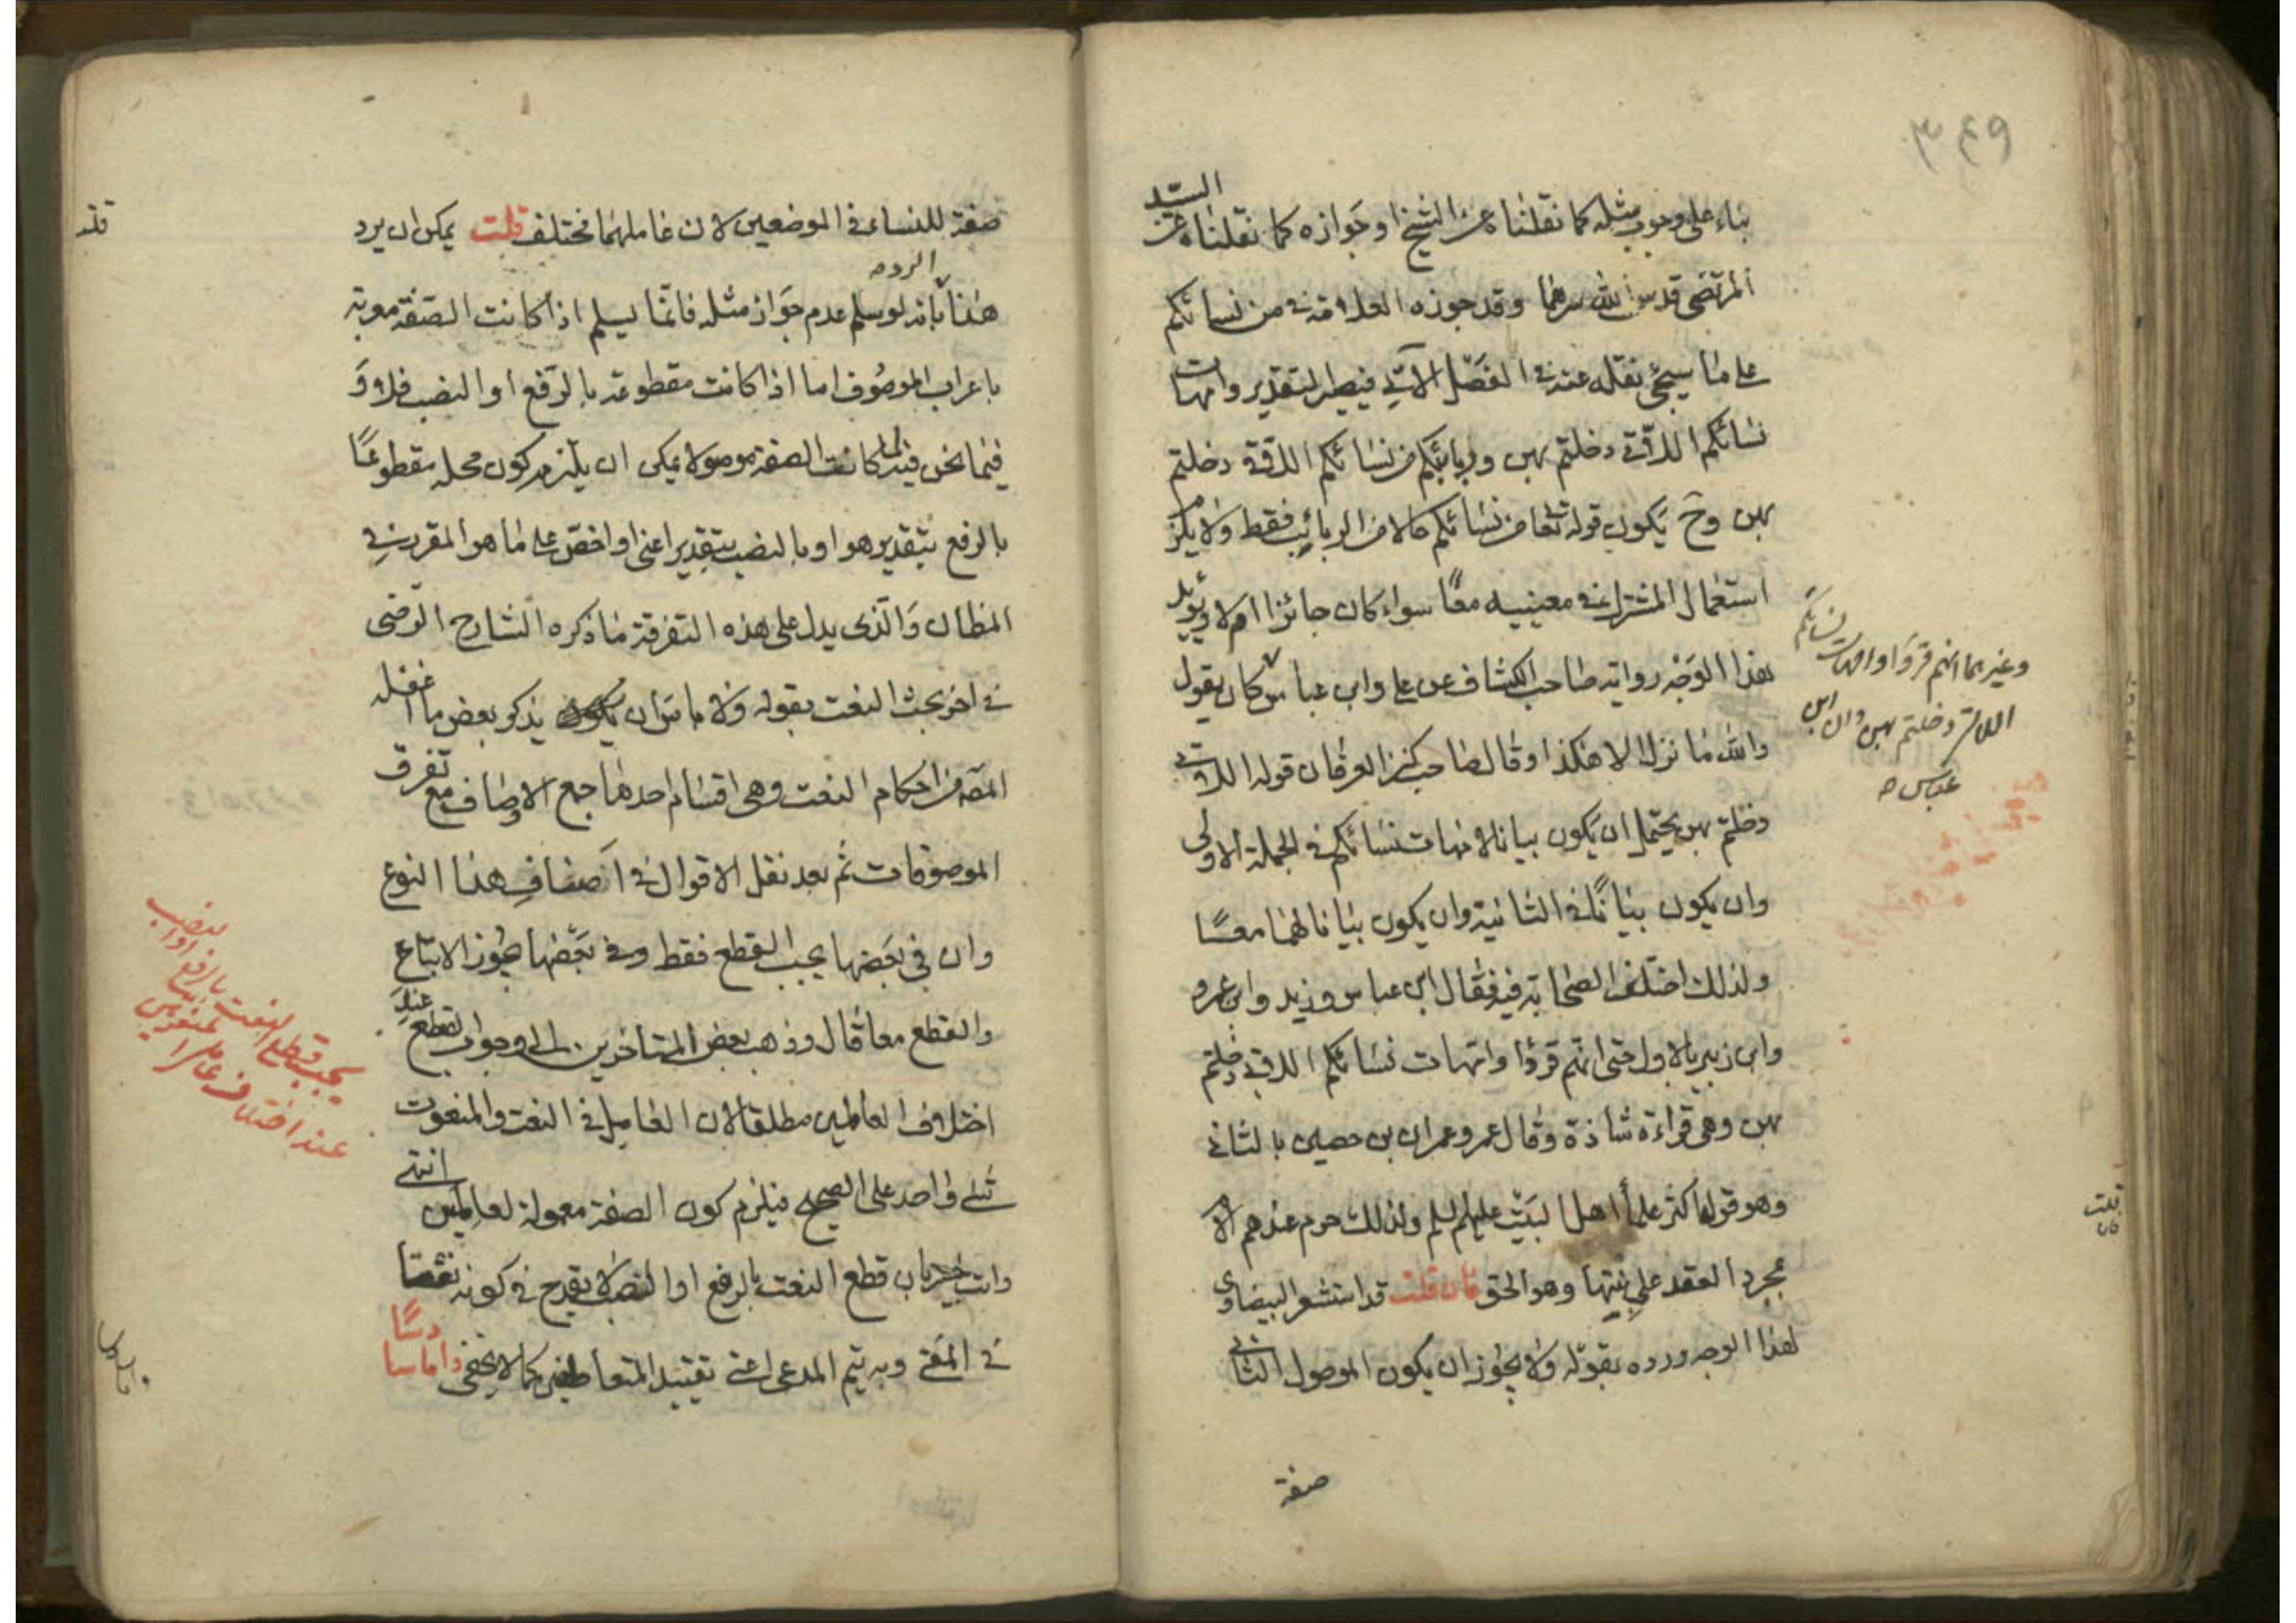 ٣٤٩
بناء على وجوب مثله كما نقلناه عن الشيخ او جوازه كما نقلناه عن السيد
المرتضى قدس الله سرهما وقد جوزه العلامة في من نسائكم
على ما سيجئ نقله عنه في الفصل الآتي فيصير التقدير وامهات
نسائكم اللاتي دخلتم بهن وربائبكم من نسائكم اللاتي دخلتم
بهن وح يكون قوله تعا من نسائكم حالا من الربائب فقط ولا يلزم
استعمال المشترك في معنييه معًا سواء كان جائزا ام لا ويؤيد
هذا الوجه رواية صاحب الكشاف عن علي وابن عباس كان يقول
والله ما نزل الا هكذا وقال صاحب كنز العرفان قوله اللاتي
دخلتم بهن يحتمل ان يكون بيانا لامهات نسائكم في الجملة الاولى
وان يكون بيانًا في الثانية وان يكون بيانا لهما معًا
ولذلك اختلف الصحابة فيه فقال ابن عباس وزيد وابن عمرو
وابن زبير بالاول حتى انهم قرؤا وامهات نسائكم اللاتي دخلتم
بهن وهي قراءة شاذة وقال عمر وعمران بن حصين بالثاني
وهو قول اكثر علماء اهل البيت عليهم السلم ولذلك حرم عندهم الام
بمجرد العقد على بنتها وهو الحق فان قلت قد استشعر البيضاوي
لهذا الوجه ورده بقوله ولا يجوز ان يكون الموصول الثاني
صفة
وغيرهما انهم قرؤا وامهات نسائكم
اللاتي دخلتم بهن وان ابن
عباس
صفة للنساء في الموضعين لان عاملهما مختلف قلت يمكن ان يرد
هذا الرد بانه لو سلم عدم جواز مثله فانما يسلم اذا كانت الصفة معربة
باعراب الموصوف اما اذا كانت مقطوعة بالرفع او النصب فلا و
فيما نحن فيه لما كانت الصفة موصولا يمكن ان يلتزم كون محله مقطوعًا
بالرفع بتقدير هو او بالنصب بتقدير اعني او اخص على ما هو المقرر في
المظان والذي يدل على هذه التفرقة ما ذكره الشارح الرضى
في اخر بحث النعت بقوله ولا باس ان يذكر بعض ما اغفله
المص من احكام النعت وهي اقسام احدها جمع الاوصاف مع تفرق
الموصوفات ثم بعد نقل الاقوال في اصناف هذا النوع
وان في بعضها يجب القطع فقط وفي بعضها يجوز الاتباع
والقطع معا قال وذهب بعض المتاخرين الى وجوب القطع عند
اختلاف العاملين مطلقا لان العامل في النعت والمنعوت
شئ واحد على الصحيح فيلزم كون الصفة معمولة لعاملين انتهى
وانت خبير بان قطع النعت بالرفع او النصب لا يقدح في كونه نعتا
في المعنى وبه يتم المدعى اعني تقييد المتعاطفين كما لا يخفى واما سا
دسًا
يجب قطع النعت بالرفع او النصب
عند اختلاف عاملي
قلت
فان